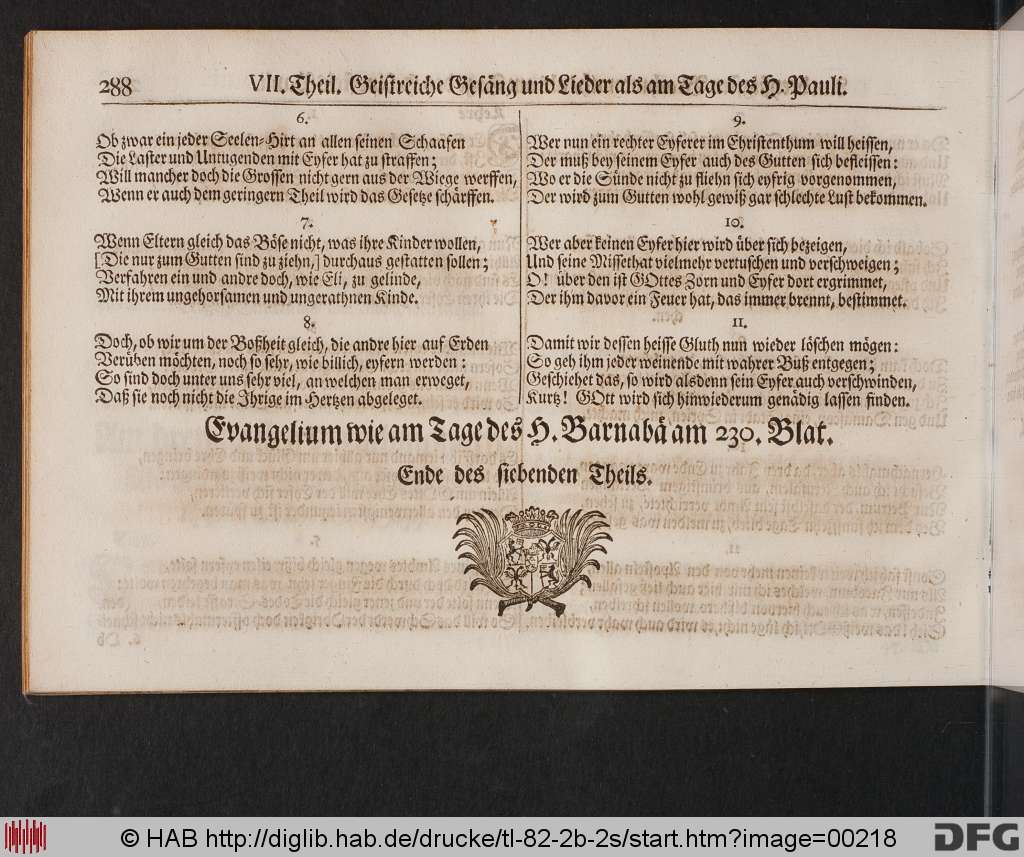 288
VII. Theil. Geistreiche Gesäng und Lieder als am Tage des H. Pauli.
6.
Ob zwar ein jeder Seelen-Hirt an allen seinen Schaafen
Die Laster und Untugenden mit Eyfer hat zu straffen;
Will mancher doch die Grossen nicht gern aus der Wiege werffen,
Wenn er auch dem geringern Theil wird das Gesetze schärffen.
7.
Wenn Eltern gleich das Böse nicht, was ihre Kinder wollen,
[Die nur zum Gutten sind zu ziehn,] durchaus gestatten sollen;
Verfahren ein und andre doch, wie Eli, zu gelinde,
Mit ihrem ungehorsamen und ungerathnen Kinde.
8.
Doch, ob wir um der Boßheit gleich, die andre hier auf Erden
Verüben möchten, noch so sehr, wie billich, eyfern werden:
So sind doch unter uns sehr viel, an welchen man erweget,
Daß sie noch nicht die Ihrige im Hertzen abgeleget.
9.
Wer nun ein rechter Eyferer im Christenthum will heissen,
Der muß bey seinem Eyfer auch des Gutten sich befleissen:
Wo er die Sünde nicht zu fliehn sich eyfrig vorgenommen,
Der wird zum Gutten wohl gewiß gar schlechte Lust bekommen.
10.
Wer aber keinen Eyfer hier wird über sich bezeigen,
Und seine Missethat vielmehr vertuschen und verschweigen;
O! über den ist GOttes Zorn und Eyfer dort ergrimmet,
Der ihm davor ein Feuer hat, das immer brennt, bestimmet.
11.
Damit wir dessen heisse Gluth nun wieder löschen mögen:
So geh ihm jeder weinende mit wahrer Buß entgegen;
Geschiehet das, so wird alsdenn sein Eyfer auch verschwinden,
Kurtz! GOtt wird sich hinwiederum genädig lassen finden.
Evangelium wie am Tage des H. Barnabä am 230. Blat.
Ende des siebenden Theils.
© HAB http://diglib.hab.de/drucke/tl-82-2b-2s/start.htm?image=00218
DFG